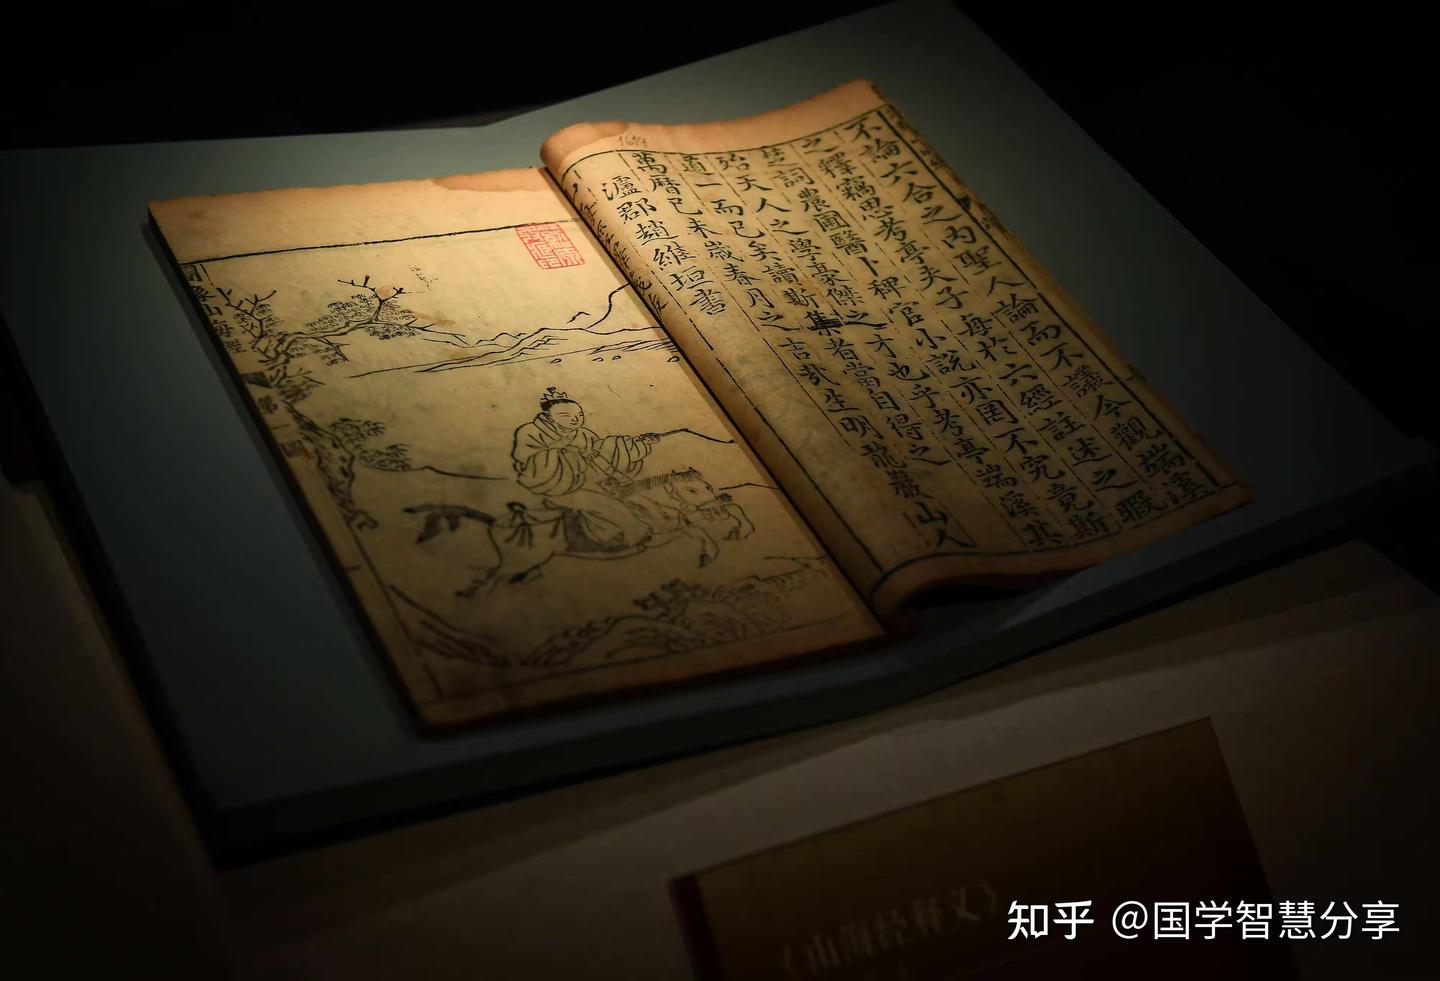 不論六合之內聖人論而不議今觀端溪
之釋竊思考亭夫子每於六經註述之暇
楚詞農圃醫卜稗官小說亦罔不究竟斯
殆天人之學豪傑之才也乎考亭端溪其
道一而已矣讀斯集者當自得之
萬曆己未歲春月之吉哉生明龍巖山人
瀘郡趙維垣書
1619
圖像山海經
《山海经释义》
知乎 @国学智慧分享